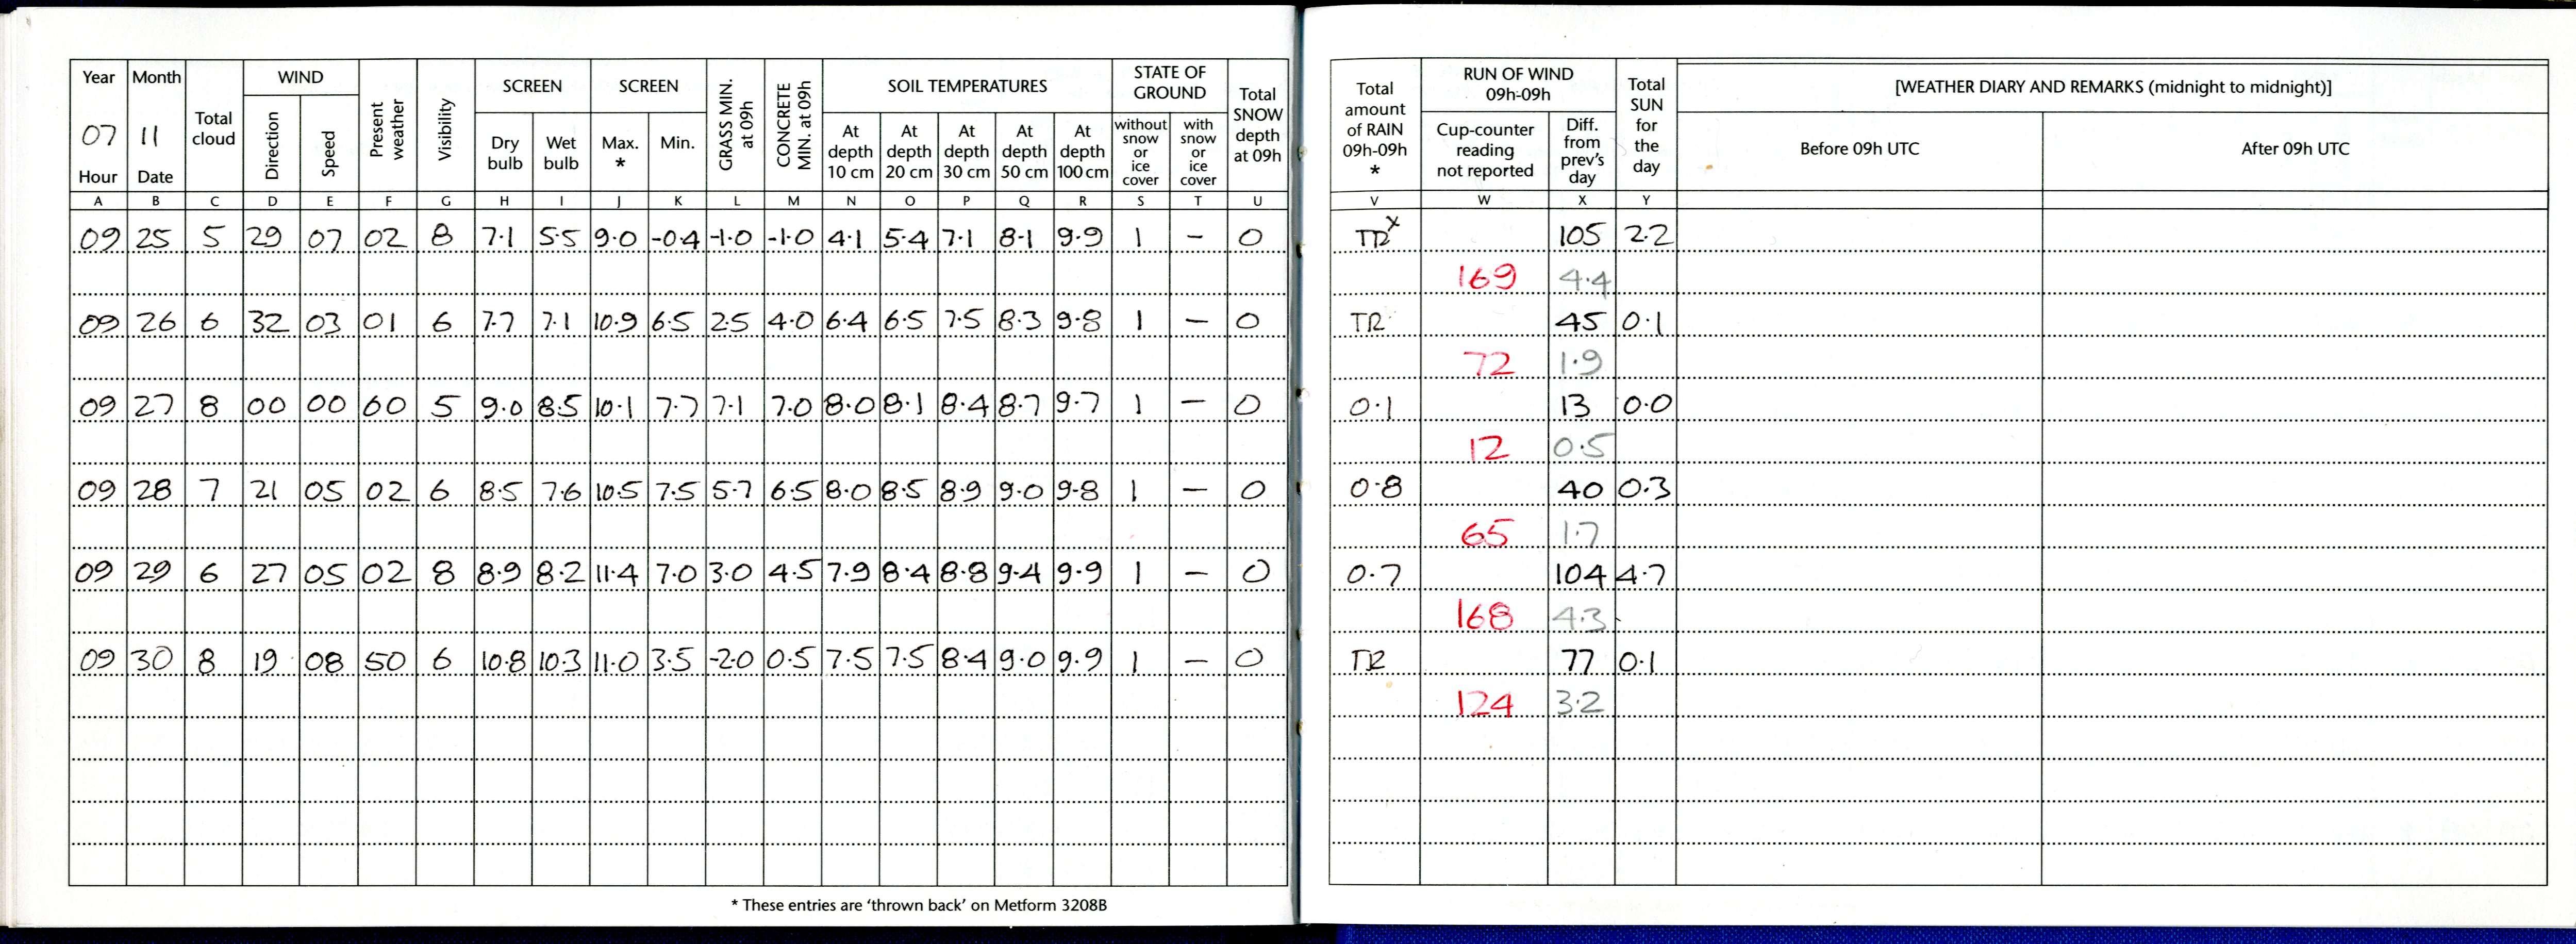 Year Month Total cloud WIND Present weather Visibility SCREEN SCREEN GRASS MIN. at 09h CONCRETE MIN. at 09h SOIL TEMPERATURES STATE OF GROUND Total SNOW depth at 09h Total amount of RAIN 09h-09h * RUN OF WIND 09h-09h Total SUN for the day [WEATHER DIARY AND REMARKS (midnight to midnight)]
07 11 Direction Speed Dry bulb Wet bulb Max. * Min. At depth 10 cm At depth 20 cm At depth 30 cm At depth 50 cm At depth 100 cm without snow or ice cover with snow or ice cover Cup-counter reading not reported Diff. from prev's day Before 09h UTC After 09h UTC
Hour Date
A B C D E F G H I J K L M N O P Q R S T U V W X Y
09 25 5 29 07 02 8 7.1 5.5 9.0 -0.4 -1.0 -1.0 4.1 5.4 7.1 8.1 9.9 1 - 0 TR x 105 2.2
169 4.4
09 26 6 32 03 01 6 7.7 7.1 10.9 6.5 2.5 4.0 6.4 6.5 7.5 8.3 9.8 1 - 0 TR 45 0.1
72 1.9
09 27 8 00 00 60 5 9.0 8.5 10.1 7.7 7.1 7.0 8.0 8.1 8.4 8.7 9.7 1 - 0 0.1 13 0.0
12 0.5
09 28 7 21 05 02 6 8.5 7.6 10.5 7.5 5.7 6.5 8.0 8.5 8.9 9.0 9.8 1 - 0 0.8 40 0.3
65 1.7
09 29 6 27 05 02 8 8.9 8.2 11.4 7.0 3.0 4.5 7.9 8.4 8.8 9.4 9.9 1 - 0 0.7 104 4.7
168 4.3
09 30 8 19 08 50 6 10.8 10.3 11.0 3.5 -2.0 0.5 7.5 7.5 8.4 9.0 9.9 1 - 0 TR 77 0.1
124 3.2
* These entries are 'thrown back' on Metform 3208B